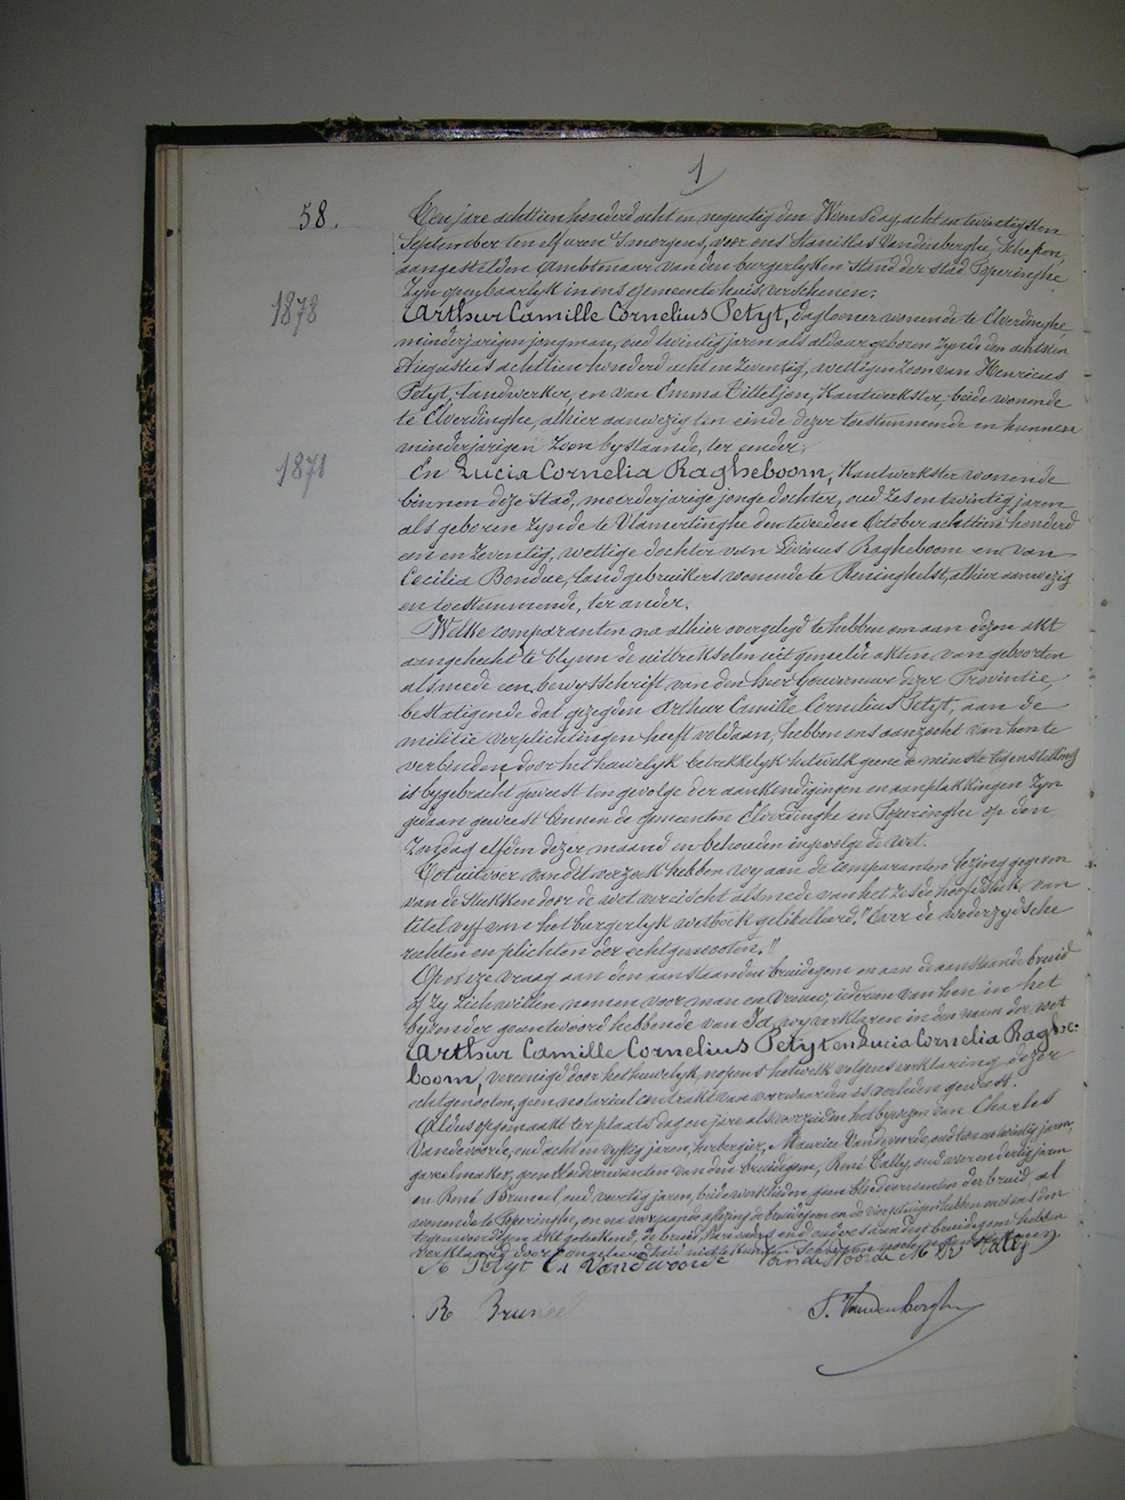 1
58.
Ten jare achttien honderd acht en negentig den Woensdag, acht en twintigsten
September ten elf uren 's morgens, voor ons Stanislas Vandenberghe, Schepen,
aangestelden Ambtenaar van den burgerlyken stand der stad Poperinghe
Zyn openbaarlyk in ons gemeentehuis verschenen:
1878
Arthur Camille Cornelius Petyt, daglooner wonende te Elverdinghe,
minderjarigen jongman, oud twintig jaren als aldaar geboren zynde den achtsten
Augustus achttien honderd acht en zeventig, wettigen zoon van Henricus
Petyt, landwerker, en van Emma Titteljon, Kantwerkster, beide wonende
te Elverdinghe, alhier aanwezig ten einde dezer toestemmende en hunnen
minderjarigen zoon bystaande, ter eender;
1871
En Lucia Cornelia Ragheboom, Kantwerkster wonende
binnen deze stad, meerderjarige jonge dochter, oud zes en twintig jaren
als geboren zynde te Vlamertinghe den tweeden October achttien honderd
een en zeventig, wettige dochter van Livinus Ragheboom en van
Cecilia Bondue, landgebruikers wonende te Reninghelst, alhier aanwezig
en toestemmende, ter ander.
Welke comparanten na alhier overgelegd te hebben om aan dezen akt
aangehecht te blyven de uittrekselen uit gemelde akten van geboorten
alsmede een bewysschrift van den heer Gouverneur dezer Provincie,
bestatigende dat gezegden Arthur Camille Cornelius Petyt, aan de
militie verplichtingen heeft voldaan, hebben ons aanzocht van hen te
verbinden door het huwelyk betrekkelyk hetwelk geene de minste tegenstelling
is bygebracht geweest ten gevolge der aankondigingen en aanplakkingen zyn
gedaan geweest binnen de gemeenten Elverdinghe en Poperinghe op den
Zondag elfden dezer maand en behouden ingevolge de wet.
Tot uitvoer van dit verzoek hebben wy aan de comparanten lezing gegeven
van de stukken door de wet vereischt alsmede van het zesde hoofdstuk van
titel vyf van het burgerlyk wetboek getitelleerd: "Over de wederzydsche
rechten en plichten der echtgenooten."
Op onze vraag aan den aanstaanden bruidegom en aan de aanstaande bruid
of zy zich willen nemen voor man en vrouw, iedereen van hen in het
byzonder geantwoord hebbende van Ja, wy verklaren in den naam der wet
Arthur Camille Cornelius Petyt en Lucia Cornelia Raghe-
boom, vereenigd door het huwelyk, nopens hetwelk volgens verklaring dezer
echtgenooten, geen notarieel contrakt van voorwaarden is verleden geweest.
Aldus opgemaakt ter plaats dag en jare als voorzeiden het bywezen van Charles
Vandevoorde, oud acht en vyftig jaren, herbergier, Maurice Vandevoorde, oud en twintig jaren,
gareelmaker, geen bloedverwanten van den bruidegom, René Cally, oud en dertig jaren
en René Bruneel oud veertig jaren, beide werklieden, geen bloedverwanten der bruid, al
wonende te Poperinghe, en na voorgaande aflezing de bruidegom en de vier getuigen hebben met ons den
tegenwoordigen akt geteekend, de bruid, hare ouders en de ouders van den bruidegom hebben
verklaard door ongeleerdheid niet te kunnen schryven noch naamteekenen.
A Petyt Ch Vandevoorde Vandevoorde M R Cally
R Bruneel S. Vandenberghe